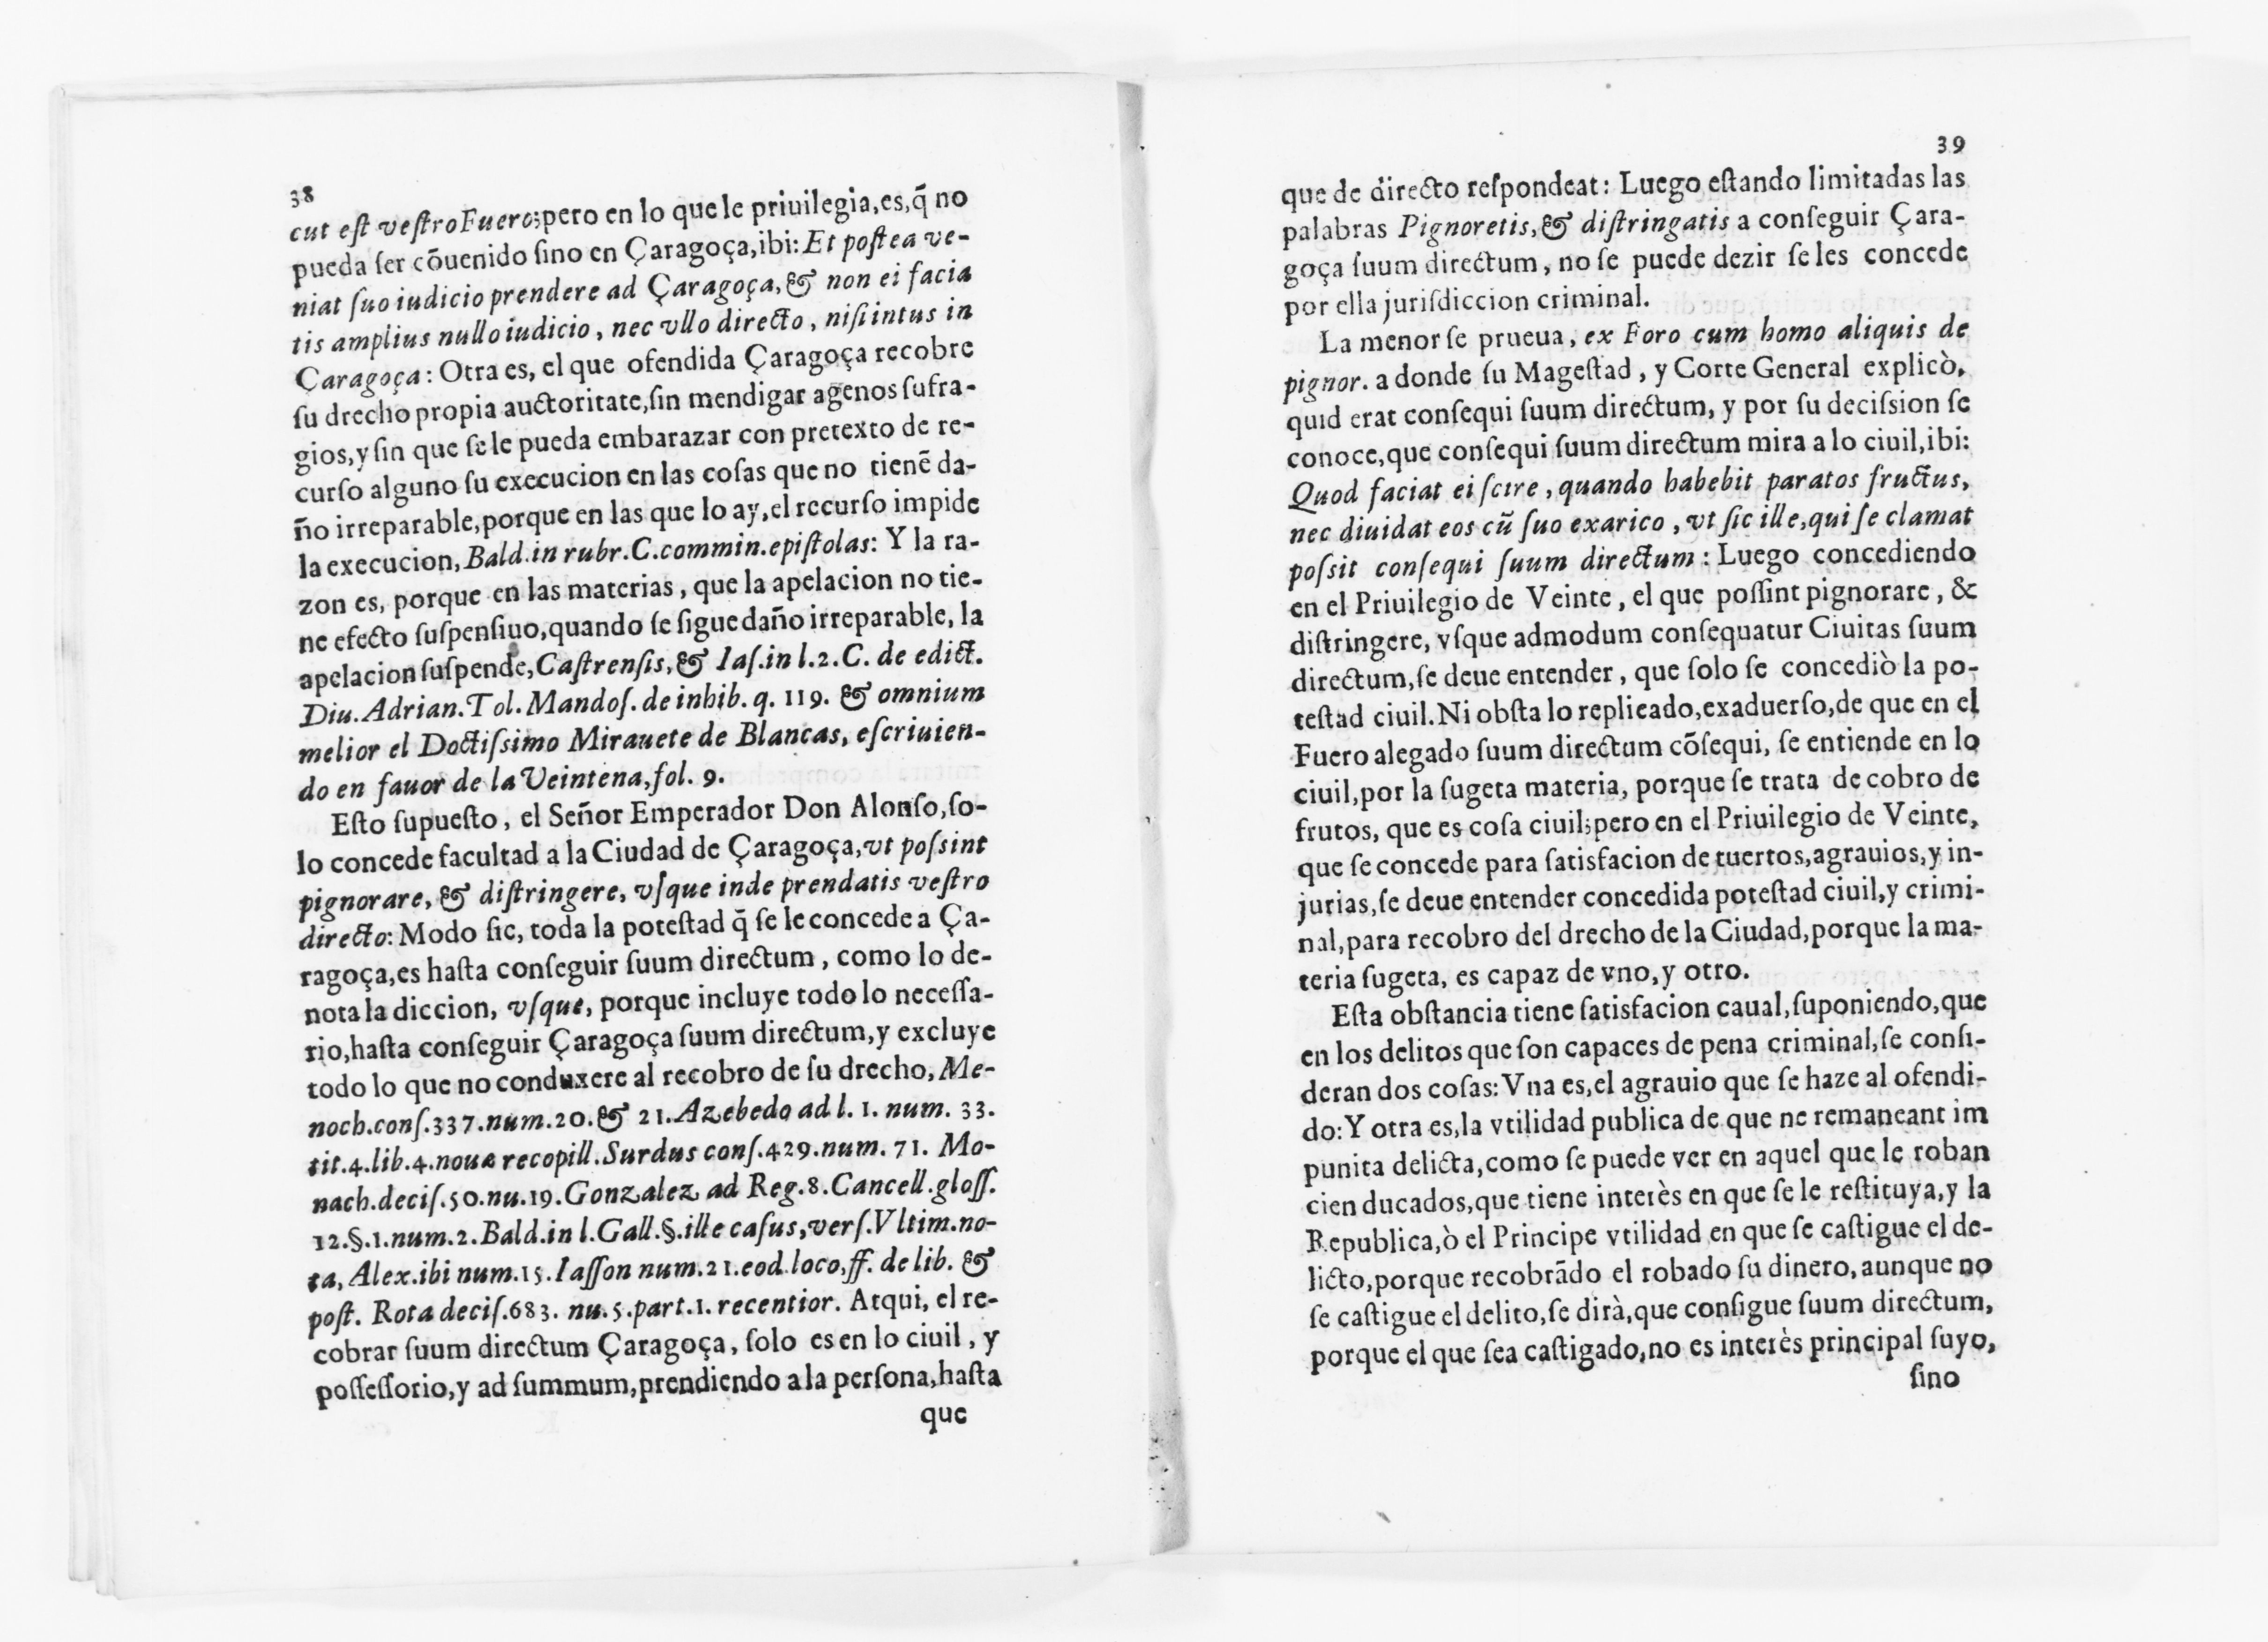 38
cut eſt veſtro Fuero; pero en lo que le priuilegia, es, q̃ no
pueda ſer cõuenido ſino en Çaragoça, ibi: Et poſtea ve-
niat ſuo iudicio prendere ad Çaragoça, & non ei facia
tis amplius nullo iudicio, nec vllo directo, niſi intus in
Çaragoça: Otra es, el que ofendida Çaragoça recobre
ſu drecho propia auctoritate, ſin mendigar agenos ſufra-
gios, y ſin que ſe le pueda embarazar con pretexto de re-
curſo alguno ſu execucion en las coſas que no tienẽ da-
ño irreparable, porque en las que lo ay, el recurſo impide
la execucion, Bald. in rubr. C. commin. epiſtolas: Y la ra-
zon es, porque en las materias, que la apelacion no tie-
ne efecto ſuſpenſiuo, quando ſe ſigue daño irreparable, la
apelacion ſuſpende, Caſtrenſis, & Iaſ. in l. 2. C. de edict.
Diu. Adrian. Tol. Mandoſ. de inhib. q. 119. & omnium
melior el Doctiſsimo Mirauete de Blancas, eſcriuien-
do en fauor de la Veintena, fol. 9.
Eſto ſupueſto, el Señor Emperador Don Alonſo, ſo-
lo concede facultad a la Ciudad de Çaragoça, vt poſsint
pignorare, & diſtringere, vſque inde prendatis veſtro
directo: Modo ſic, toda la poteſtad q̃ ſe le concede a Ça-
ragoça, es haſta conſeguir ſuum directum, como lo de-
nota la diccion, vſque, porque incluye todo lo neceſſa-
rio, haſta conſeguir Çaragoça ſuum directum, y excluye
todo lo que no conduxere al recobro de ſu drecho, Me-
noch. conſ. 337. num. 20. & 21. Azebedo ad l. 1. num. 33.
tit. 4. lib. 4. nouæ recopill. Surdus conſ. 429. num. 71. Mo-
nach. deciſ. 50. nu. 19. Gonzalez ad Reg. 8. Cancell. gloſſ.
12. §. 1. num. 2. Bald. in l. Gall. §. ille caſus, verſ. Vltim. no-
ta, Alex. ibi num. 15. Iaſſon num. 21. eod. loco, ff. de lib. &
poſt. Rota deciſ. 683. nu. 5. part. 1. recentior. Atqui, el re-
cobrar ſuum directum Çaragoça, ſolo es en lo ciuil, y
poſſeſſorio, y ad ſummum, prendiendo a la perſona, haſta
que
39
que de directo reſpondeat: Luego eſtando limitadas las
palabras Pignoretis, & diſtringatis a conſeguir Çara-
goça ſuum directum, no ſe puede dezir ſe les concede
por ella juriſdiccion criminal.
La menor ſe prueua, ex Foro cum homo aliquis de
pignor. a donde ſu Mageſtad, y Corte General explicò,
quid erat conſequi ſuum directum, y por ſu deciſsion ſe
conoce, que conſequi ſuum directum mira a lo ciuil, ibi:
Quod faciat ei ſcire, quando habebit paratos fructus,
nec diuidat eos cũ ſuo exarico, vt ſic ille, qui ſe clamat
poſsit conſequi ſuum directum: Luego concediendo
en el Priuilegio de Veinte, el que poſſint pignorare, &
diſtringere, vſque admodum conſequatur Ciuitas ſuum
directum, ſe deue entender, que ſolo ſe concediò la po-
teſtad ciuil. Ni obſta lo replicado, exaduerſo, de que en el
Fuero alegado ſuum directum cõſequi, ſe entiende en lo
ciuil, por la ſugeta materia, porque ſe trata de cobro de
frutos, que es coſa ciuil; pero en el Priuilegio de Veinte,
que ſe concede para ſatisfacion de tuertos, agrauios, y in-
jurias, ſe deue entender concedida poteſtad ciuil, y crimi-
nal, para recobro del drecho de la Ciudad, porque la ma-
teria ſugeta, es capaz de vno, y otro.
Eſta obſtancia tiene ſatisfacion caual, ſuponiendo, que
en los delitos que ſon capaces de pena criminal, ſe conſi-
deran dos coſas: Vna es, el agrauio que ſe haze al ofendi-
do: Y otra es, la vtilidad publica de que ne remaneant im
punita delicta, como ſe puede ver en aquel que le roban
cien ducados, que tiene interès en que ſe le reſtituya, y la
Republica, ò el Principe vtilidad en que ſe caſtigue el de-
licto, porque recobrãdo el robado ſu dinero, aunque no
ſe caſtigue el delito, ſe dirà, que conſigue ſuum directum,
porque el que ſea caſtigado, no es interès principal ſuyo,
ſino